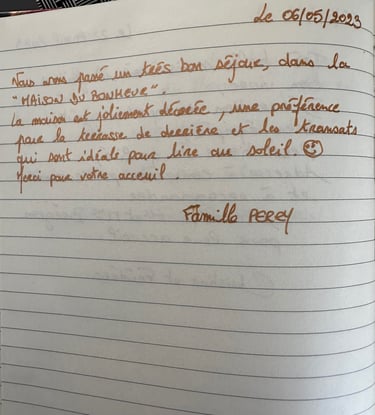 Le 06/05/2023
Nous avons passé un très bon séjour, dans la
"MAISON DU BONHEUR"
La maison est joliement décorée, une préférence
pour la terrasse de derrière et les transats
qui sont idéals pour lire au soleil. ☺
Merci pour votre acceuil.
Famille PERRY